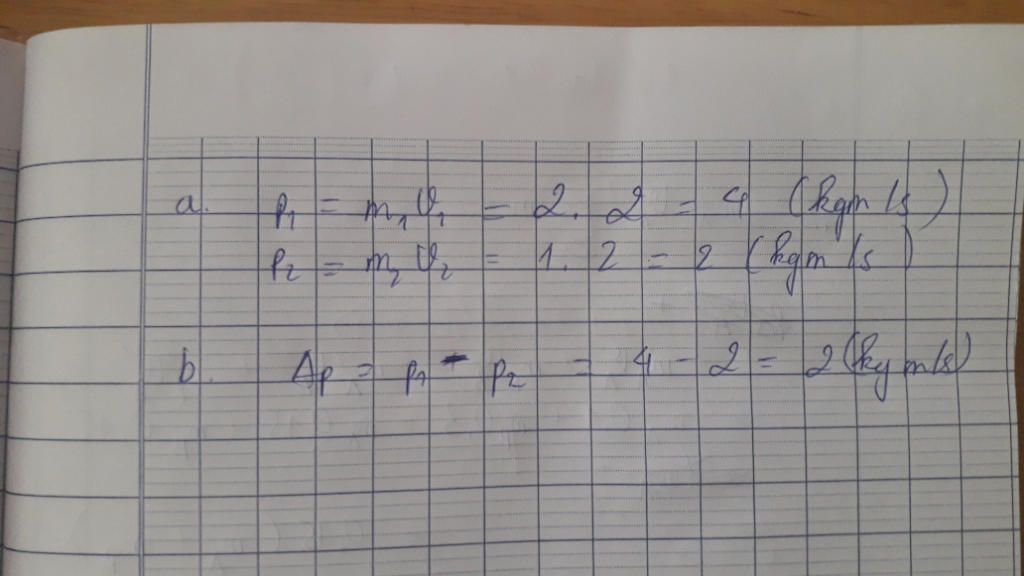 a. p₁ = m₁ v₁ = 2. 2 = 4 (kgm/s)
p₂ = m₂ v₂ = 1. 2 = 2 (kgm/s)
b. Δp = p₁ - p₂ = 4 - 2 = 2 (kg m/s)